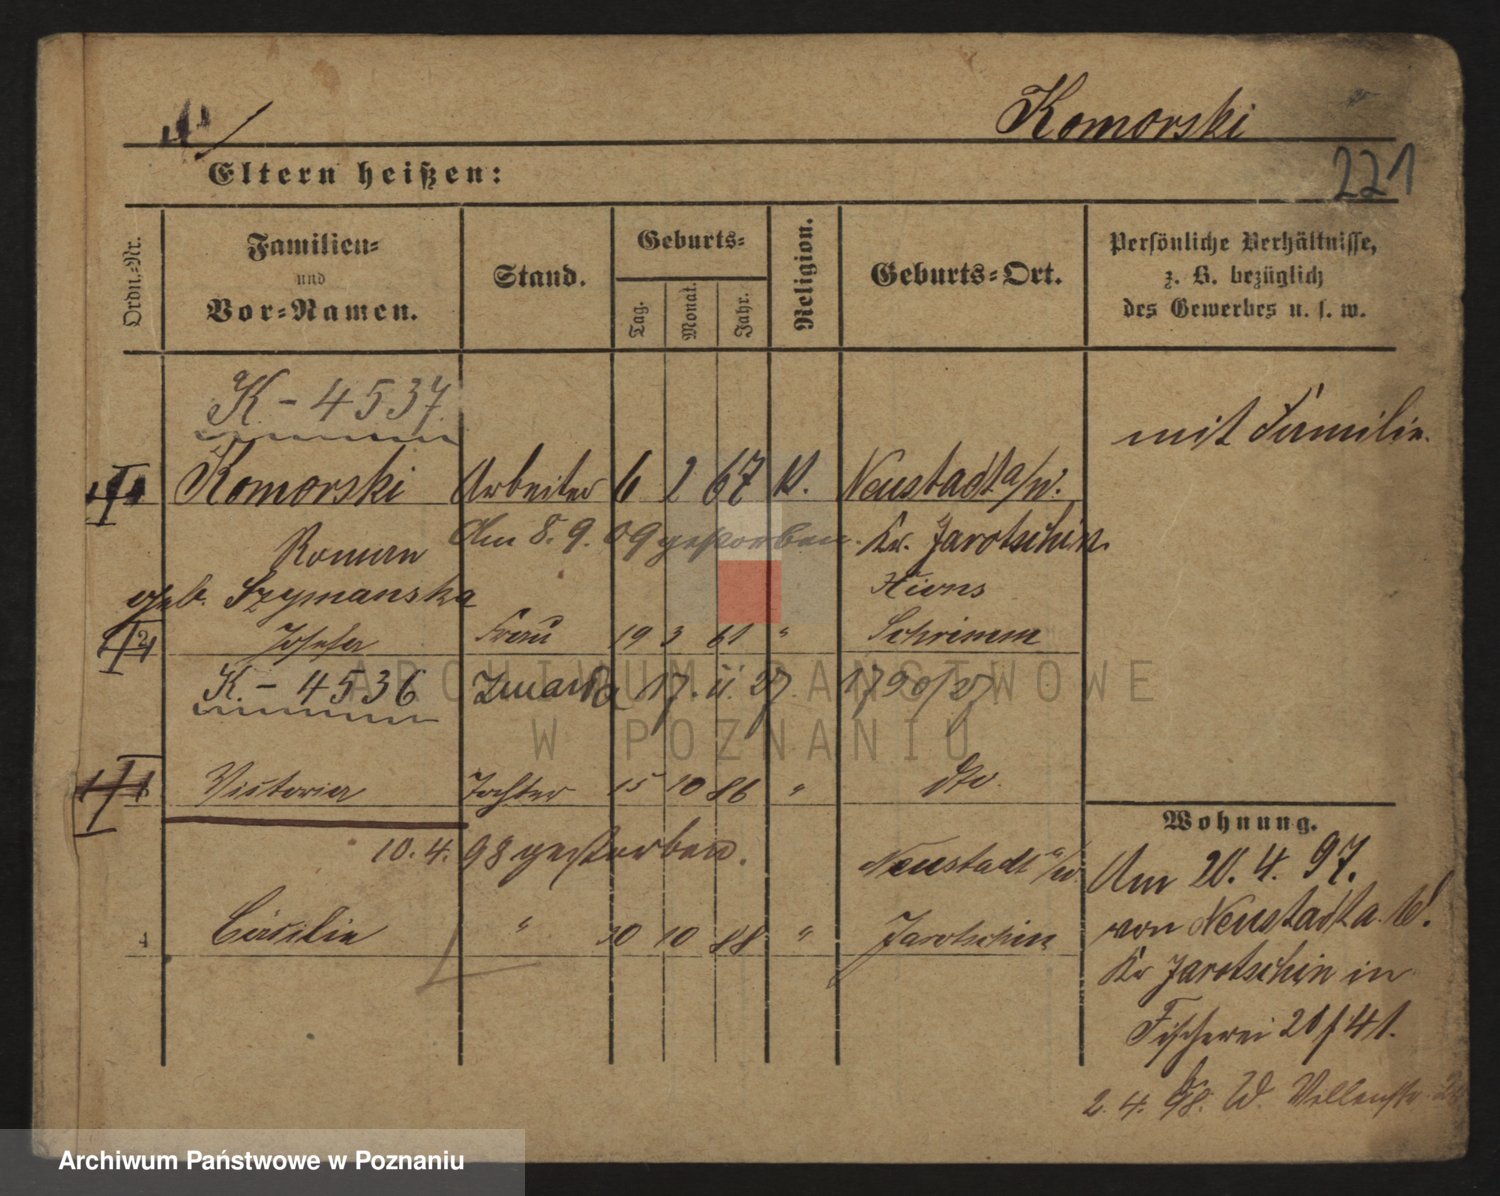 Komorski
221
Eltern heißen:
Ordn.-Nr.
Familien-
und
Vor-Namen.
Stand.
Geburts-
Tag.
Monat.
Jahr.
Religion.
Geburts-Ort.
Persönliche Verhältnisse,
z. B. bezüglich
des Gewerbes u. s. w.
K-4537
mit Familie.
Komorski Arbeiter 6 2 67 K. Neustadt a/W.
Roman Am 8.9.09 gestorben. Kr. Jarotschin.
geb. Szymanska Xions
2 Josefa Frau 19 3 61 " Schrimm
K.-4536 Zmarła 17. II. 27. 1790/27
Victoria Tochter 15 10 86 " dto.
10.4.98 gestorben. Neustadt a/W.
4 Cäcilie " 20 10 88 " Jarotschin
Wohnung.
Am 20.4.97.
von Neustadt a. W.
Kr Jarotschin in
Fischerei 20/41.
2.4.98. W.
ARCHIWUM PAŃSTWOWE
W POZNANIU
Archiwum Państwowe w Poznaniu